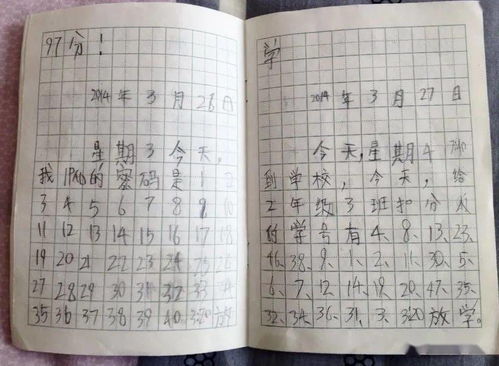 97分！
2014年3月26日
星期3今天，
我IPAD的密码是1 2
3 4 5 6 7 8 9 10
11 12 13 14 15 16 17 18
19 20 21 22 23 24 25 26
27 28 29 30 31 32 33 34
35 36 37 38 39 40 3:20放
学
2014年3月27日
今天，星期4 7:40
到学校，今天，给
2年级3班扣分人
的学号有4、8、13、23、
46、38、9、1、2、11、30、5、
6、7、12、14、19、20、47、35、
32、34、36、31、3、320放学。